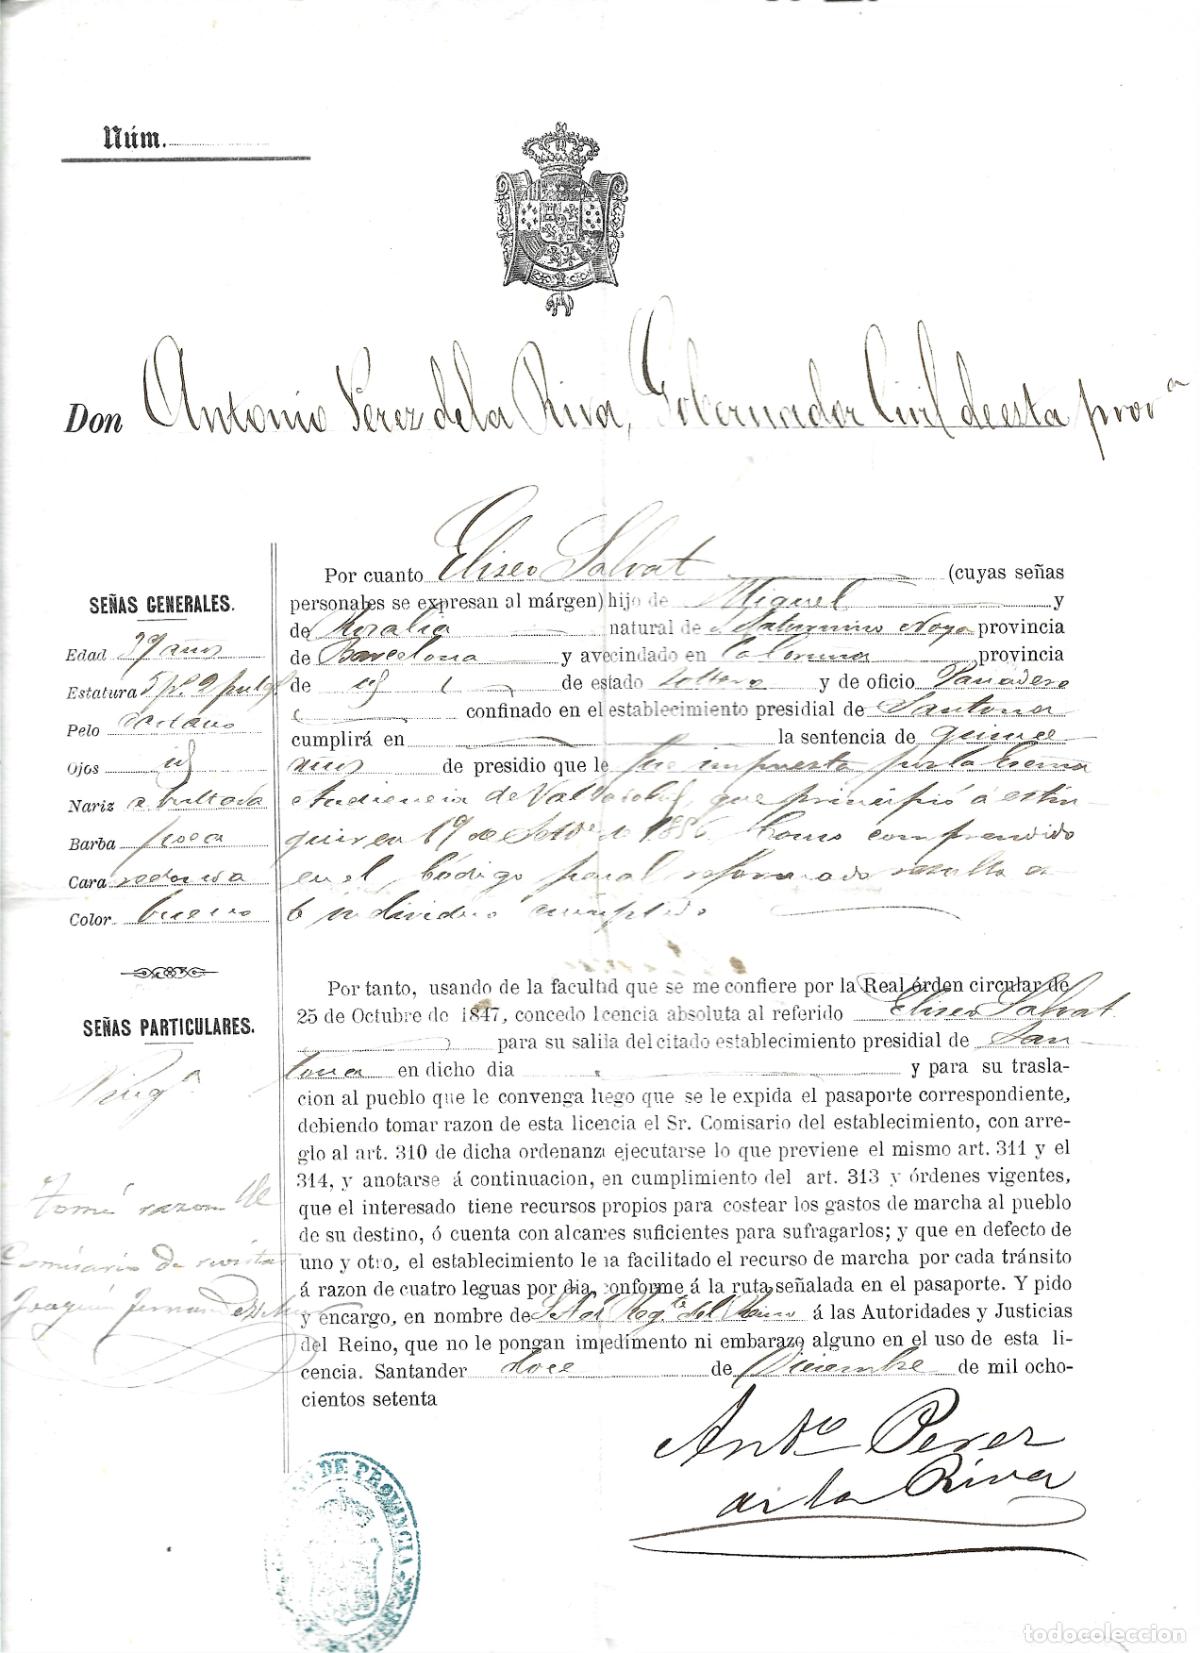 Núm.
Don Antonio Perez de la Riva, Gobernador Civil de esta provª
SEÑAS GENERALES.
Edad 39 años
Estatura 5 ps 2 pulgs
Pelo castano
Ojos id
Nariz abultada
Barba poca
Cara redonda
Color bueno
SEÑAS PARTICULARES.
Ningª
Tomé razon El
Comisario de revistas
Joaquin Fernandez
Por cuanto Eliseo Salvat (cuyas señas
personales se expresan al márgen) hijo de Miguel y
de Rosalia natural de Saturnino Noya provincia
de Barcelona y avecindado en provincia
de id de estado soltero y de oficio Panadero
confinado en el establecimiento presidial de Santona
cumplirá en la sentencia de quince
de presidio que le fue impuesta por la Escma
Audiencia de Valladolid, que principió á estin-
guir en 19 de Setbe de 1856. Como comprendido
en el Código penal reformado resulta
individuo cumplido
Por tanto, usando de la facultad que se me confiere por la Real órden circular de
25 de Octubre de 1847, concedo licencia absoluta al referido Eliseo Salvat
para su salida del citado establecimiento presidial de San-
tona en dicho dia y para su trasla-
cion al pueblo que le convenga luego que se le expida el pasaporte correspondiente,
debiendo tomar razon de esta licencia el Sr. Comisario del establecimiento, con arre-
glo al art. 310 de dicha ordenanza ejecutarse lo que previene el mismo art. 311 y el
314, y anotarse á continuacion, en cumplimiento del art. 313 y órdenes vigentes,
que el interesado tiene recursos propios para costear los gastos de marcha al pueblo
de su destino, ó cuenta con alcances suficientes para sufragarlos; y que en defecto de
uno y otro, el establecimiento le ha facilitado el recurso de marcha por cada tránsito
á razon de cuatro leguas por dia, conforme á la ruta señalada en el pasaporte. Y pido
y encargo, en nombre de S. A. el Regte del Reino á las Autoridades y Justicias
del Reino, que no le pongan impedimento ni embarazo alguno en el uso de esta li-
cencia. Santander doce de Diciembre de mil ocho-
cientos setenta
Antº Perez
de la Riva
DE PROVINCIA
todocoleccion